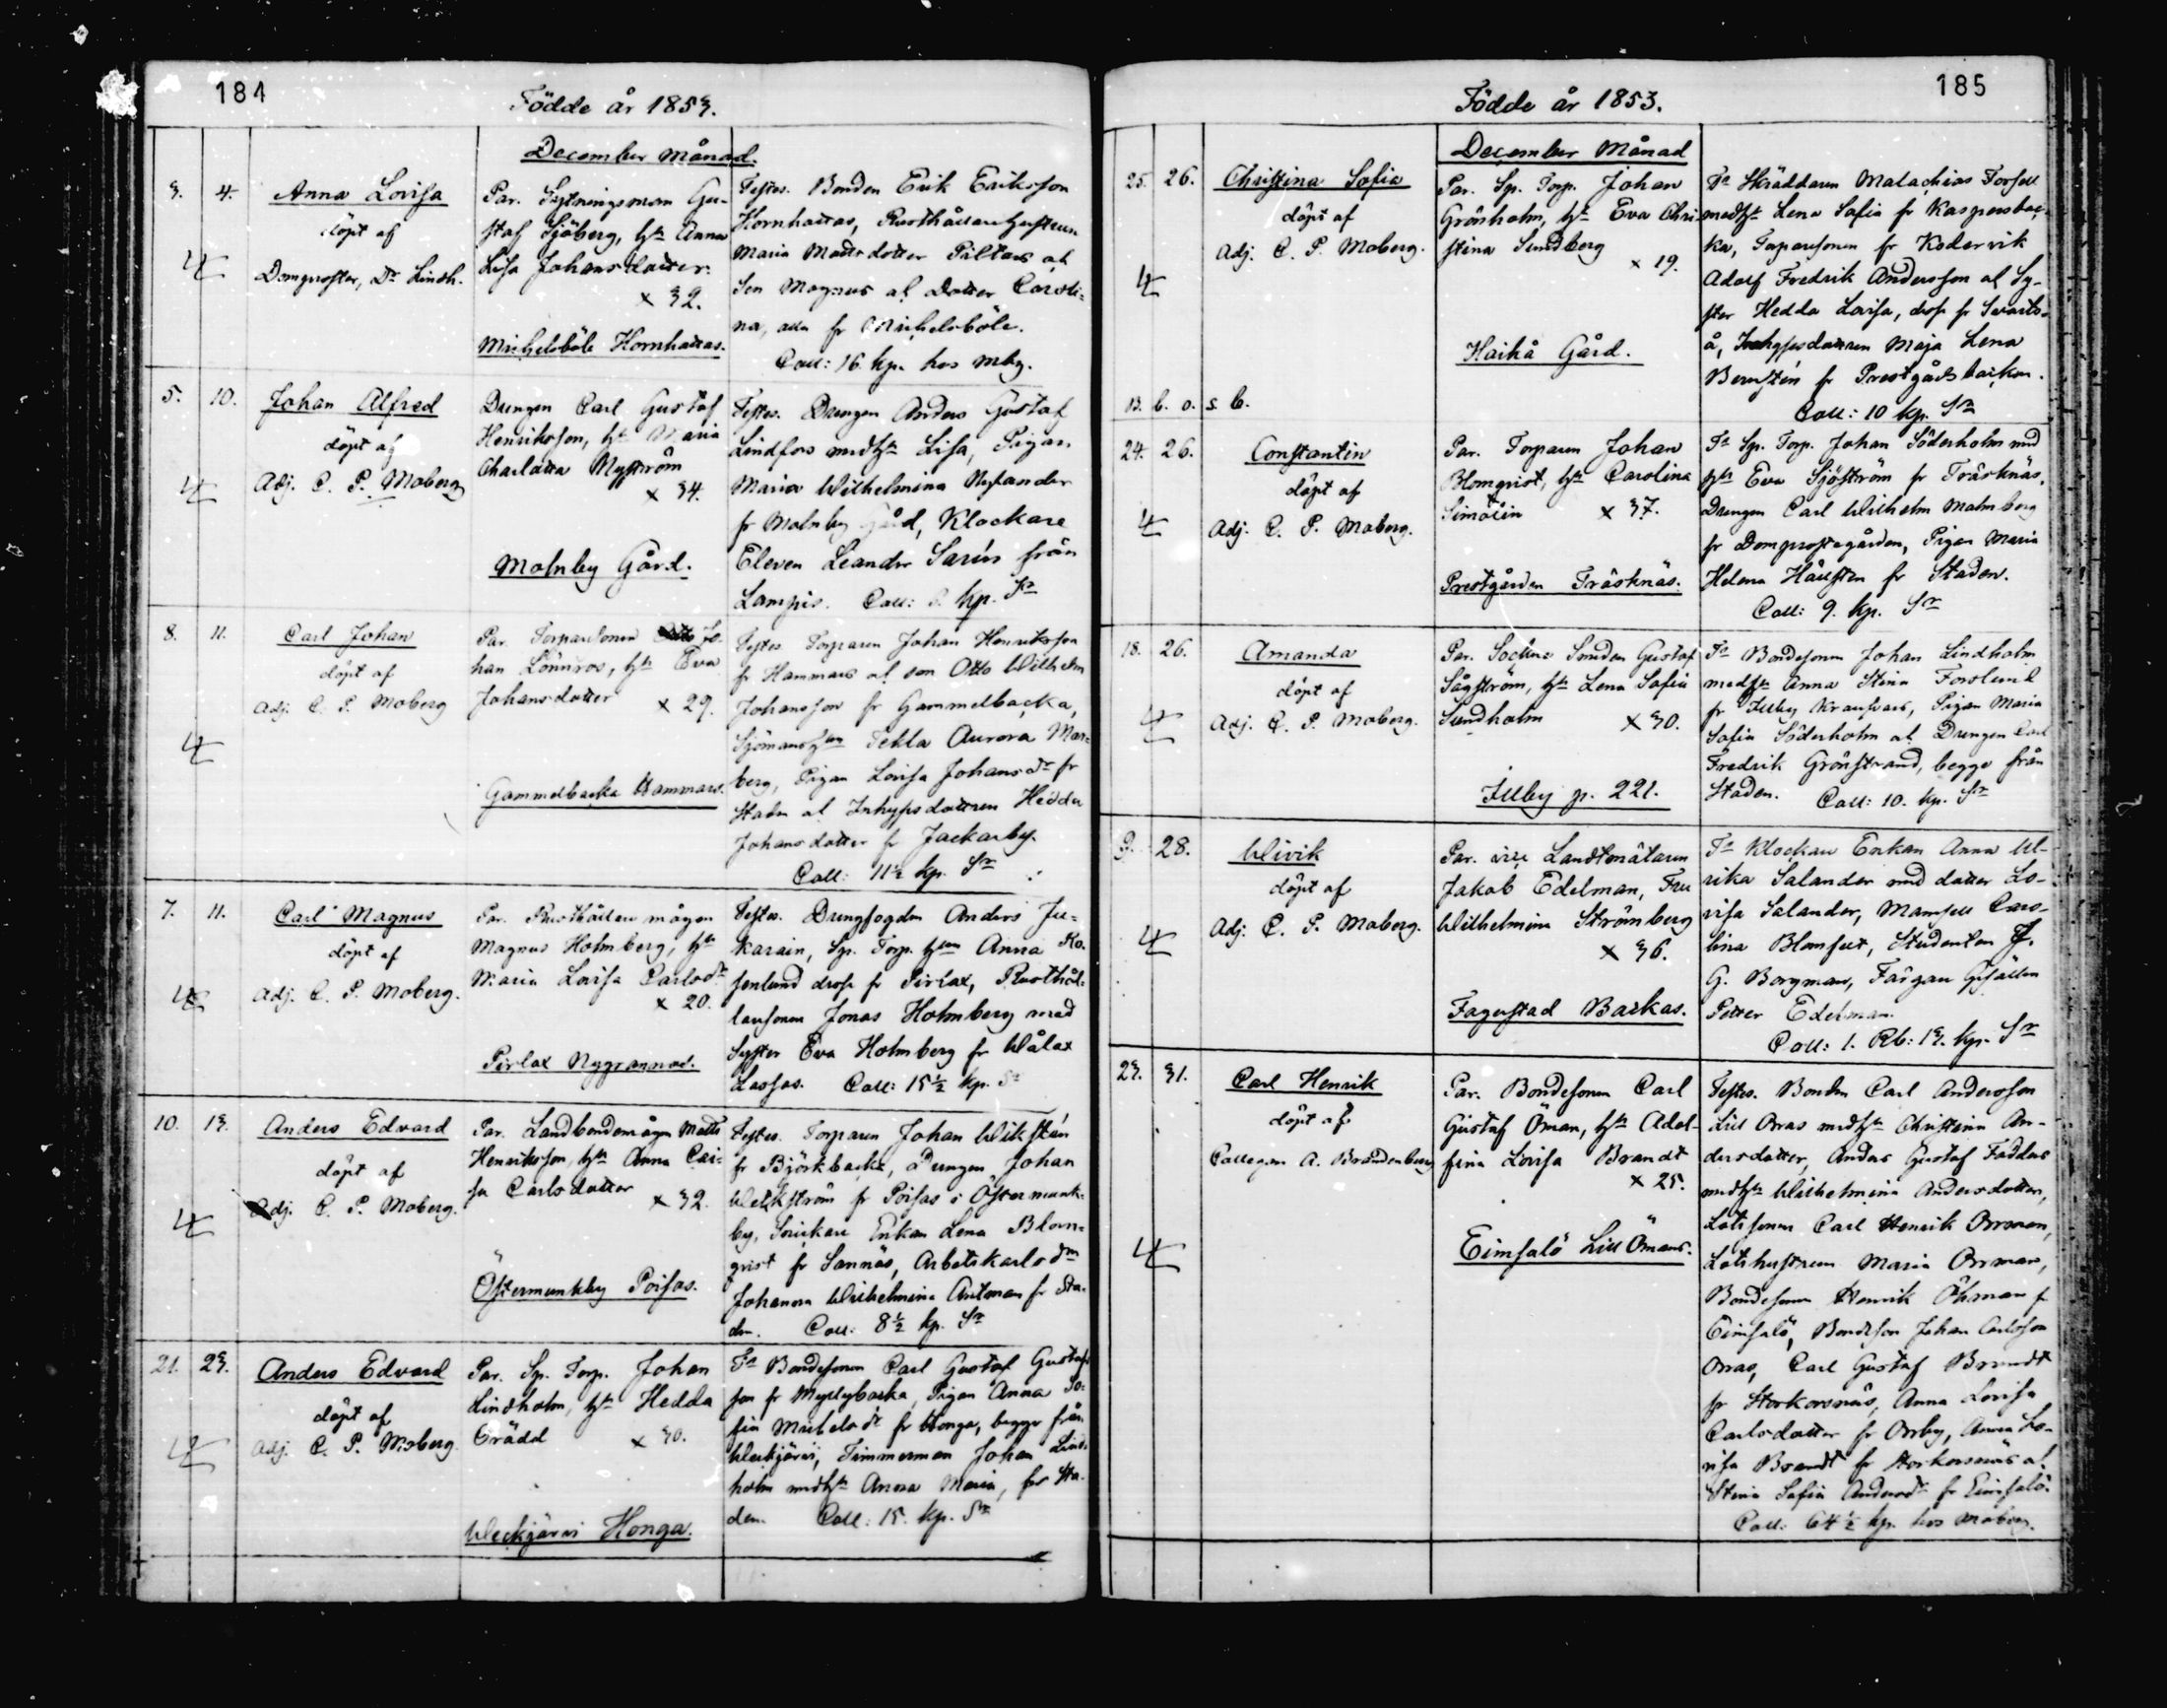 184
Födde år 1853.
December Månad.
3. 4. Anna Lovisa
döpt af
Domprosten, Dr Lindh.
Par. Sytningsman Gu-
staf Sjöberg, h. Anna
Lisa Johansdotter.
x 32.
Mickelsböle Hornhattas.
Testes. Bonden Erik Eriksson
Hornhattas, Rusthållarehustrun
Maria Matts dotter
Son Magnus a. Dotter Caroli-
na, alla fr Mickelsböle.
Coll: 16 kp. hos mbg.
5. 10. Johan Alfred
döpt af
Adj. C. P. Moberg
Drengen Carl Gustaf
Henriksson, h. Maria
Charlotta Nyström
x 34.
Molnby Gård.
Testes. Drengen Anders Gustaf
Lindfors med h. Lisa, Pigan
Maria Wilhelmina Nylander
fr Molnby Gård, Klockare
Eleven Leander från
Lampis. Coll: kp. Sr
8. 11. Carl Johan
döpt af
Adj. C. P. Moberg
Par. Torparesonen Jo-
han Lönnros, h. Eva
Johansdotter x 29.
Gammelbacka Hammars.
Testes Torparen Johan Henriksson
fr Hammars a. son Otto Wilhelm
Johansson fr Gammelbacka,
Tekla Aurora Mar-
berg, Pigan Lovisa Johansdr fr
Staden a. Inhysesdottren Hedda
Johansdotter fr Jackarby.
Coll: 11½ kp. Sr
7. 11. Carl Magnus
döpt af
Adj. C. P. Moberg.
Par. Rusthållaremågen
Magnus Holmberg, h.
Maria Lovisa Carlsdr
x 20.
Pirlax Nygrannas.
Testes. Drengfogden Anders Ju-
karain, Sp. Torp. h. Anna Ro-
senlund fr Pirlax, Rusthål-
laresonen Jonas Holmberg med
Syster Eva Holmberg fr Wålax
Lassas. Coll: 15½ kp. Sr
10. 13. Anders Edvard
döpt af
Adj. C. P. Moberg.
Par. Landbondemågen Matts
Henriksson, h. Anna Cai-
sa Carlsdotter x 32.
Östermunkby Poisas.
Testes. Torparen Johan Wiksten
fr Björkbacka, Drengen Johan
Weckström fr Poisas i Östermunk-
by, Enkan Lena Blom-
qvist fr Sannäs, Arbetskarls dr
Johanna Wilhelmina Antman fr Sta-
den. Coll: 8½ kp. Sr
21. 23. Anders Edvard
döpt af
Adj. C. P. Moberg
Par. Sp. Torp. Johan
Lindholm, h. Hedda
Grädd x 30.
Weckjärvi Honga.
Ts Bondesonen Carl Gustaf Gustafs
son fr Myllybacka, Pigan Anna So-
fia Mickelsdr fr Honga, begge från
Weckjärvi, Timmerman Johan Lind-
holm med h. Anna Maria, fr Sta-
den. Coll: 15. kp. Sr
185
Födde år 1853.
December Månad
25. 26. Christina Sofia
döpt af
Adj. C. P. Moberg.
Par. Sp. Torp. Johan
Grönholm, h. Eva Chri-
stina Sundberg
x 19.
Haikå Gård.
Ts Skräddaren Malachias Forsell
med h. Lena Sofia fr Kaspersbac-
ka, Torparesonen fr Kodervik
Adolf Fredrik Andersson a. Sy-
ster Hedda Lovisa, fr Svarts-
å, Inhysesdottren Maja Lena
Bernsten fr Prestgårdsbacken.
Coll: 10 kp. Sr
B. b. o. s. b.
24. 26. Constantin
döpt af
Adj. C. P. Moberg.
Par. Torparen Johan
Blomqvist, h. Carolina
Simolin x 37.
Prestgården Träsknäs.
Ts Sp. Torp. Johan Söderholm med
h. Eva Sjöström fr Träsknäs,
Drengen Carl Wilhelm Malmberg
fr Domprostegården, Pigan Maria
Helena Hällsten fr Staden.
Coll: 9. kp. Sr
18. 26. Amanda
döpt af
Adj. C. P. Moberg.
Par. Sockne Smeden Gustaf
Sågström, h. Lena Sofia
Sundholm x 30.
Illby p. 221.
Ts Bondesonen Johan Lindholm
med h. Anna Stina Forslund
fr Illby, Pigan Maria
Sofia Söderholm a. Drengen Carl
Fredrik Grönstrand, begge från
Staden. Coll: 10. kp. Sr
9. 28. Ulrik
döpt af
Adj. C. P. Moberg.
Par. vice Landtmätaren
Jakob Edelman, Fru
Wilhelmina Strömberg
x 36.
Fagerstad Backas.
Ts Klockare Enkan Anna Ul-
rika Salander med dotter Lo-
visa Salander, Mamsell Caro-
lina Blomfelt, Studenten J.
G. Borgman, Färgare Gesällen
Petter Edelman.
Coll: 1. Rb: 13. kp. Sr
23. 31. Carl Henrik
döpt af
Collegan A. Brandenburg
Par. Bondesonen Carl
Gustaf Öman, h. Adol-
fina Lovisa Brandt
x 25.
Eimsalö Lill Ömans.
Testes. Bonden Carl Andersson
Lill Orras med h. Christina An-
dersdotter, Anders Gustaf Faddas
med h. Wilhelmina Andersdotter,
Lotssonen Carl Henrik Orrman,
Lotshustrun Maria Orrman,
Bondesonen Henrik Öhman f
Eimsalö, Bondeson Johan Carlsson
Orras, Carl Gustaf Brandt
fr Storkorsnäs, Anna Lovisa
Carlsdotter fr Orrby, Anna Lo-
visa Brandt fr Storkorsnäs a.
Stina Sofia Andersdr fr Eimsalö.
Coll: 64½ kp. hos Moberg.